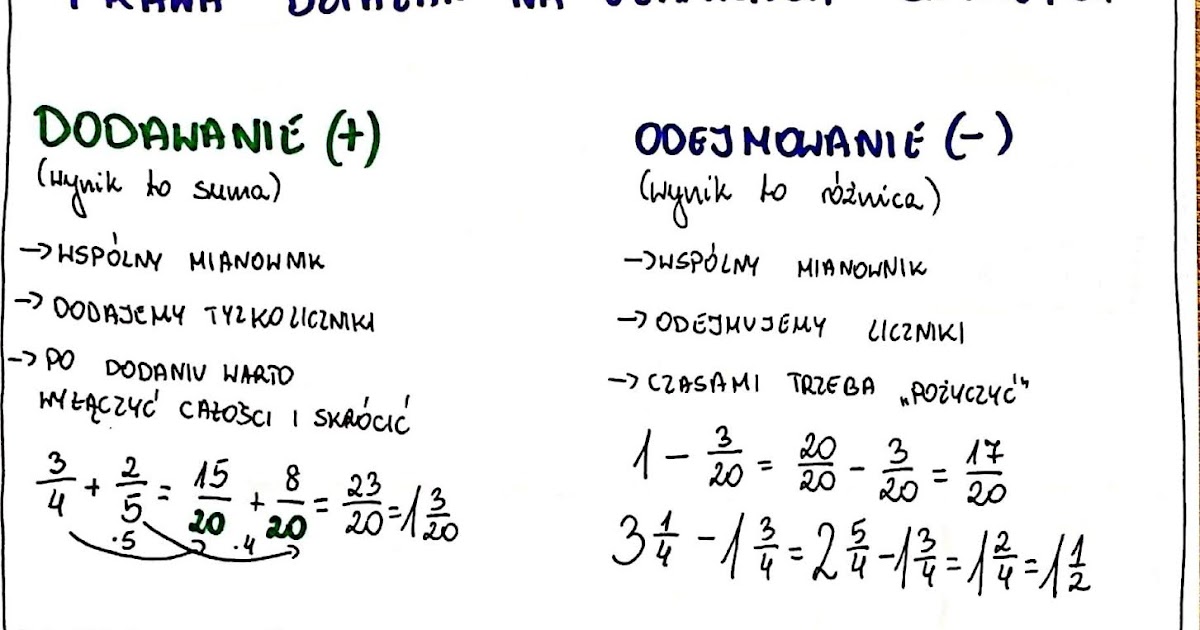 DODAWANIE (+)
(wynik to suma)
→ WSPÓLNY MIANOWNIK
→ DODAJEMY TYLKO LICZNIKI
→ PO DODANIU WARTO
WYŁĄCZYĆ CAŁOŚCI I SKRÓCIĆ
3/4 + 2/5 = 15/20 + 8/20 = 23/20 = 1 3/20
·5 ·4
ODEJMOWANIE (-)
(wynik to różnica)
→ WSPÓLNY MIANOWNIK
→ ODEJMUJEMY LICZNIKI
→ CZASAMI TRZEBA „POŻYCZYĆ"
1 - 3/20 = 20/20 - 3/20 = 17/20
3 1/4 - 1 3/4 = 2 5/4 - 1 3/4 = 1 2/4 = 1 1/2